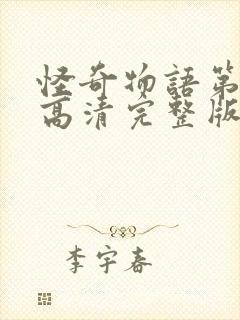 怪奇物語第
高清完整版
李宇春